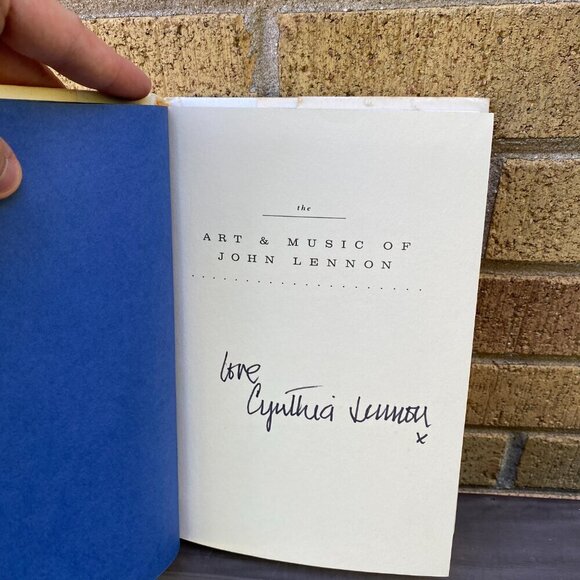 the
ART & MUSIC OF
JOHN LENNON
love
Cynthia Lennon
x